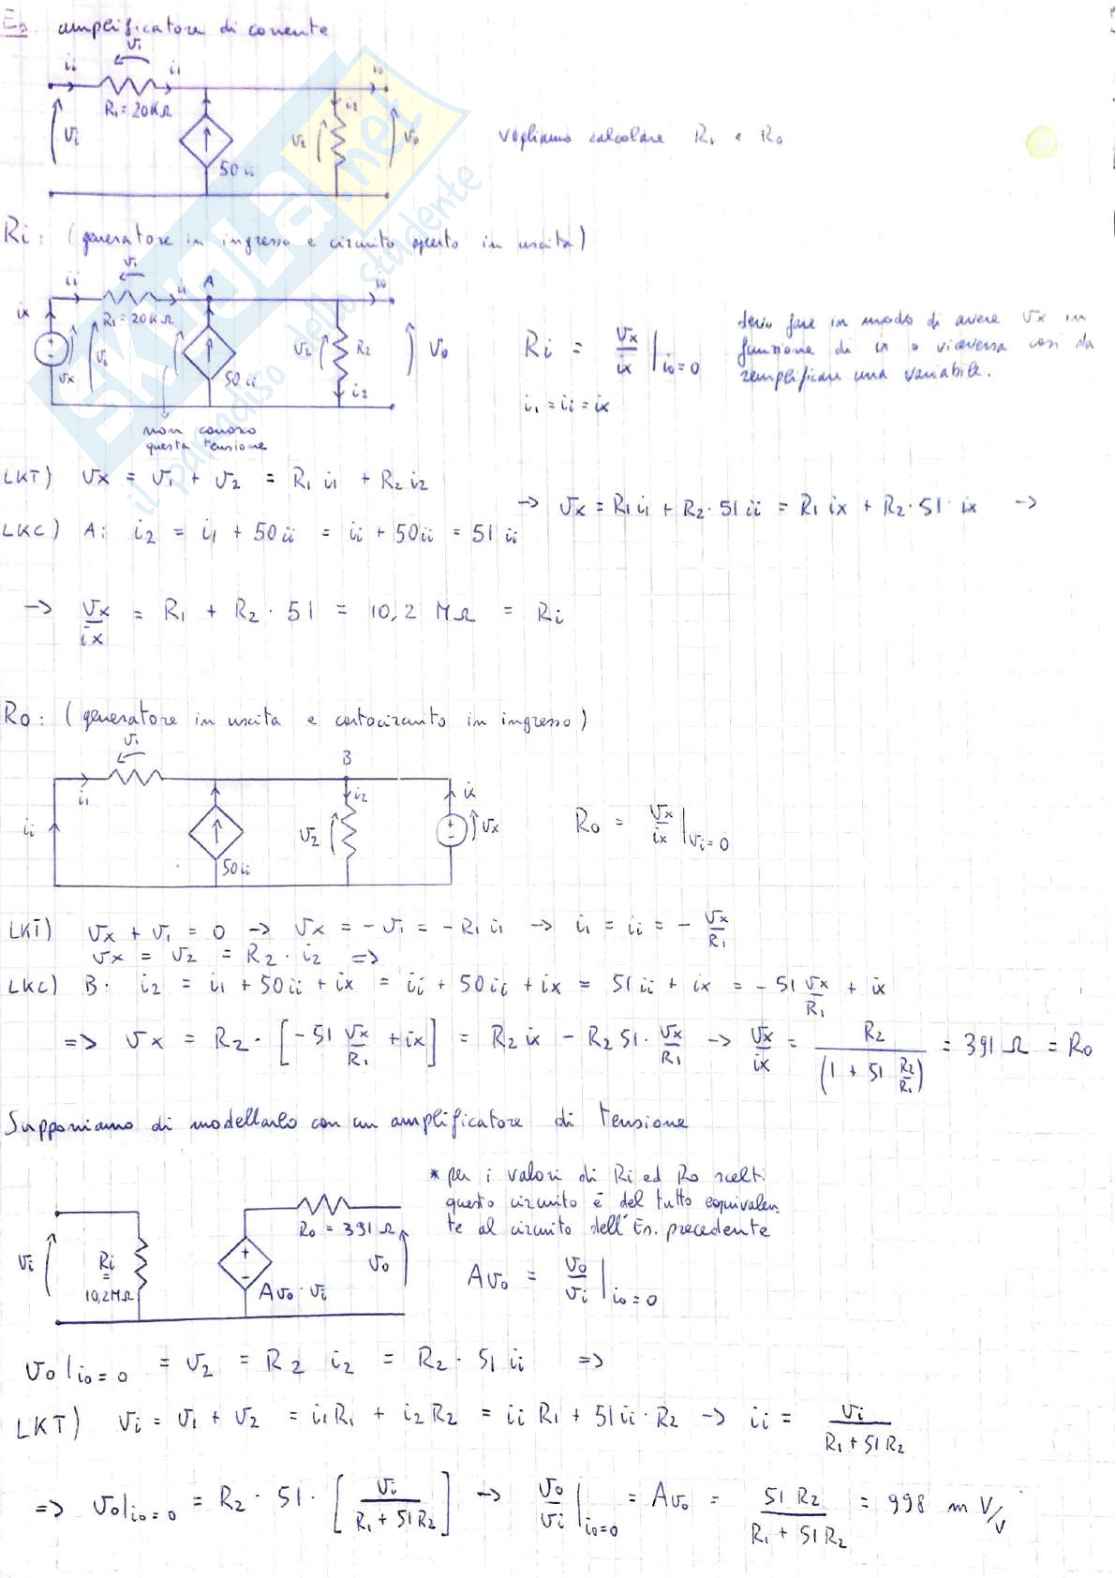 Es. amplificatore di corrente
v₁
ii i₁ i₀
R₁ = 20KΩ i₂
vi v₂ v₀
50 ii
vogliamo calcolare Ri e R₀
Ri: (generatore in ingresso e circuito aperto in uscita)
v₁
ii i₁ A i₀
ix R₁ = 20KΩ
vx vi v₂ R₂ v₀
50 ii i₂
non conosco
questa tensione
Ri = vx/ix |i₀=0
i₁ = ii = ix
devo fare in modo di avere vx in
funzione di ix o viceversa così da
semplificare una variabile.
LKT) vx = v₁ + v₂ = R₁ i₁ + R₂ i₂
LKC) A: i₂ = i₁ + 50 ii = ii + 50 ii = 51 ii
→ vx = R₁ i₁ + R₂ · 51 ii = R₁ ix + R₂ · 51 · ix →
→ vx/ix = R₁ + R₂ · 51 = 10,2 MΩ = Ri
R₀: (generatore in uscita e cortocircuito in ingresso)
v₁
i₁ B i₂ ix
ii v₂ vx
50 ii
R₀ = vx/ix |vi=0
LKT) vx + v₁ = 0 → vx = - v₁ = - R₁ i₁ → i₁ = ii = - vx/R₁
vx = v₂ = R₂ · i₂ =>
LKC) B · i₂ = i₁ + 50 ii + ix = ii + 50 ii + ix = 51 ii + ix = - 51 vx/R₁ + ix
=> vx = R₂ · [- 51 vx/R₁ + ix] = R₂ ix - R₂ 51 · vx/R₁ → vx/ix = R₂/(1 + 51 R₂/R₁) = 391 Ω = R₀
Supponiamo di modellarlo con un amplificatore di tensione
R₀ = 391 Ω
vi Ri = 10,2MΩ v₀
Av₀ · vi
* per i valori di Ri ed R₀ scelti
questo circuito è del tutto equivalen-
te al circuito dell'Es. precedente
Av₀ = v₀/vi |i₀=0
v₀|i₀=0 = v₂ = R₂ i₂ = R₂ · 51 ii =>
LKT) vi = v₁ + v₂ = i₁R₁ + i₂R₂ = ii R₁ + 51 ii · R₂ → ii = vi/(R₁ + 51R₂)
=> v₀|i₀=0 = R₂ · 51 · [vi/(R₁ + 51R₂)] → v₀/vi |i₀=0 = Av₀ = 51 R₂/(R₁ + 51R₂) = 998 m V/V
SKUOLA.net
il paradiso dello studente